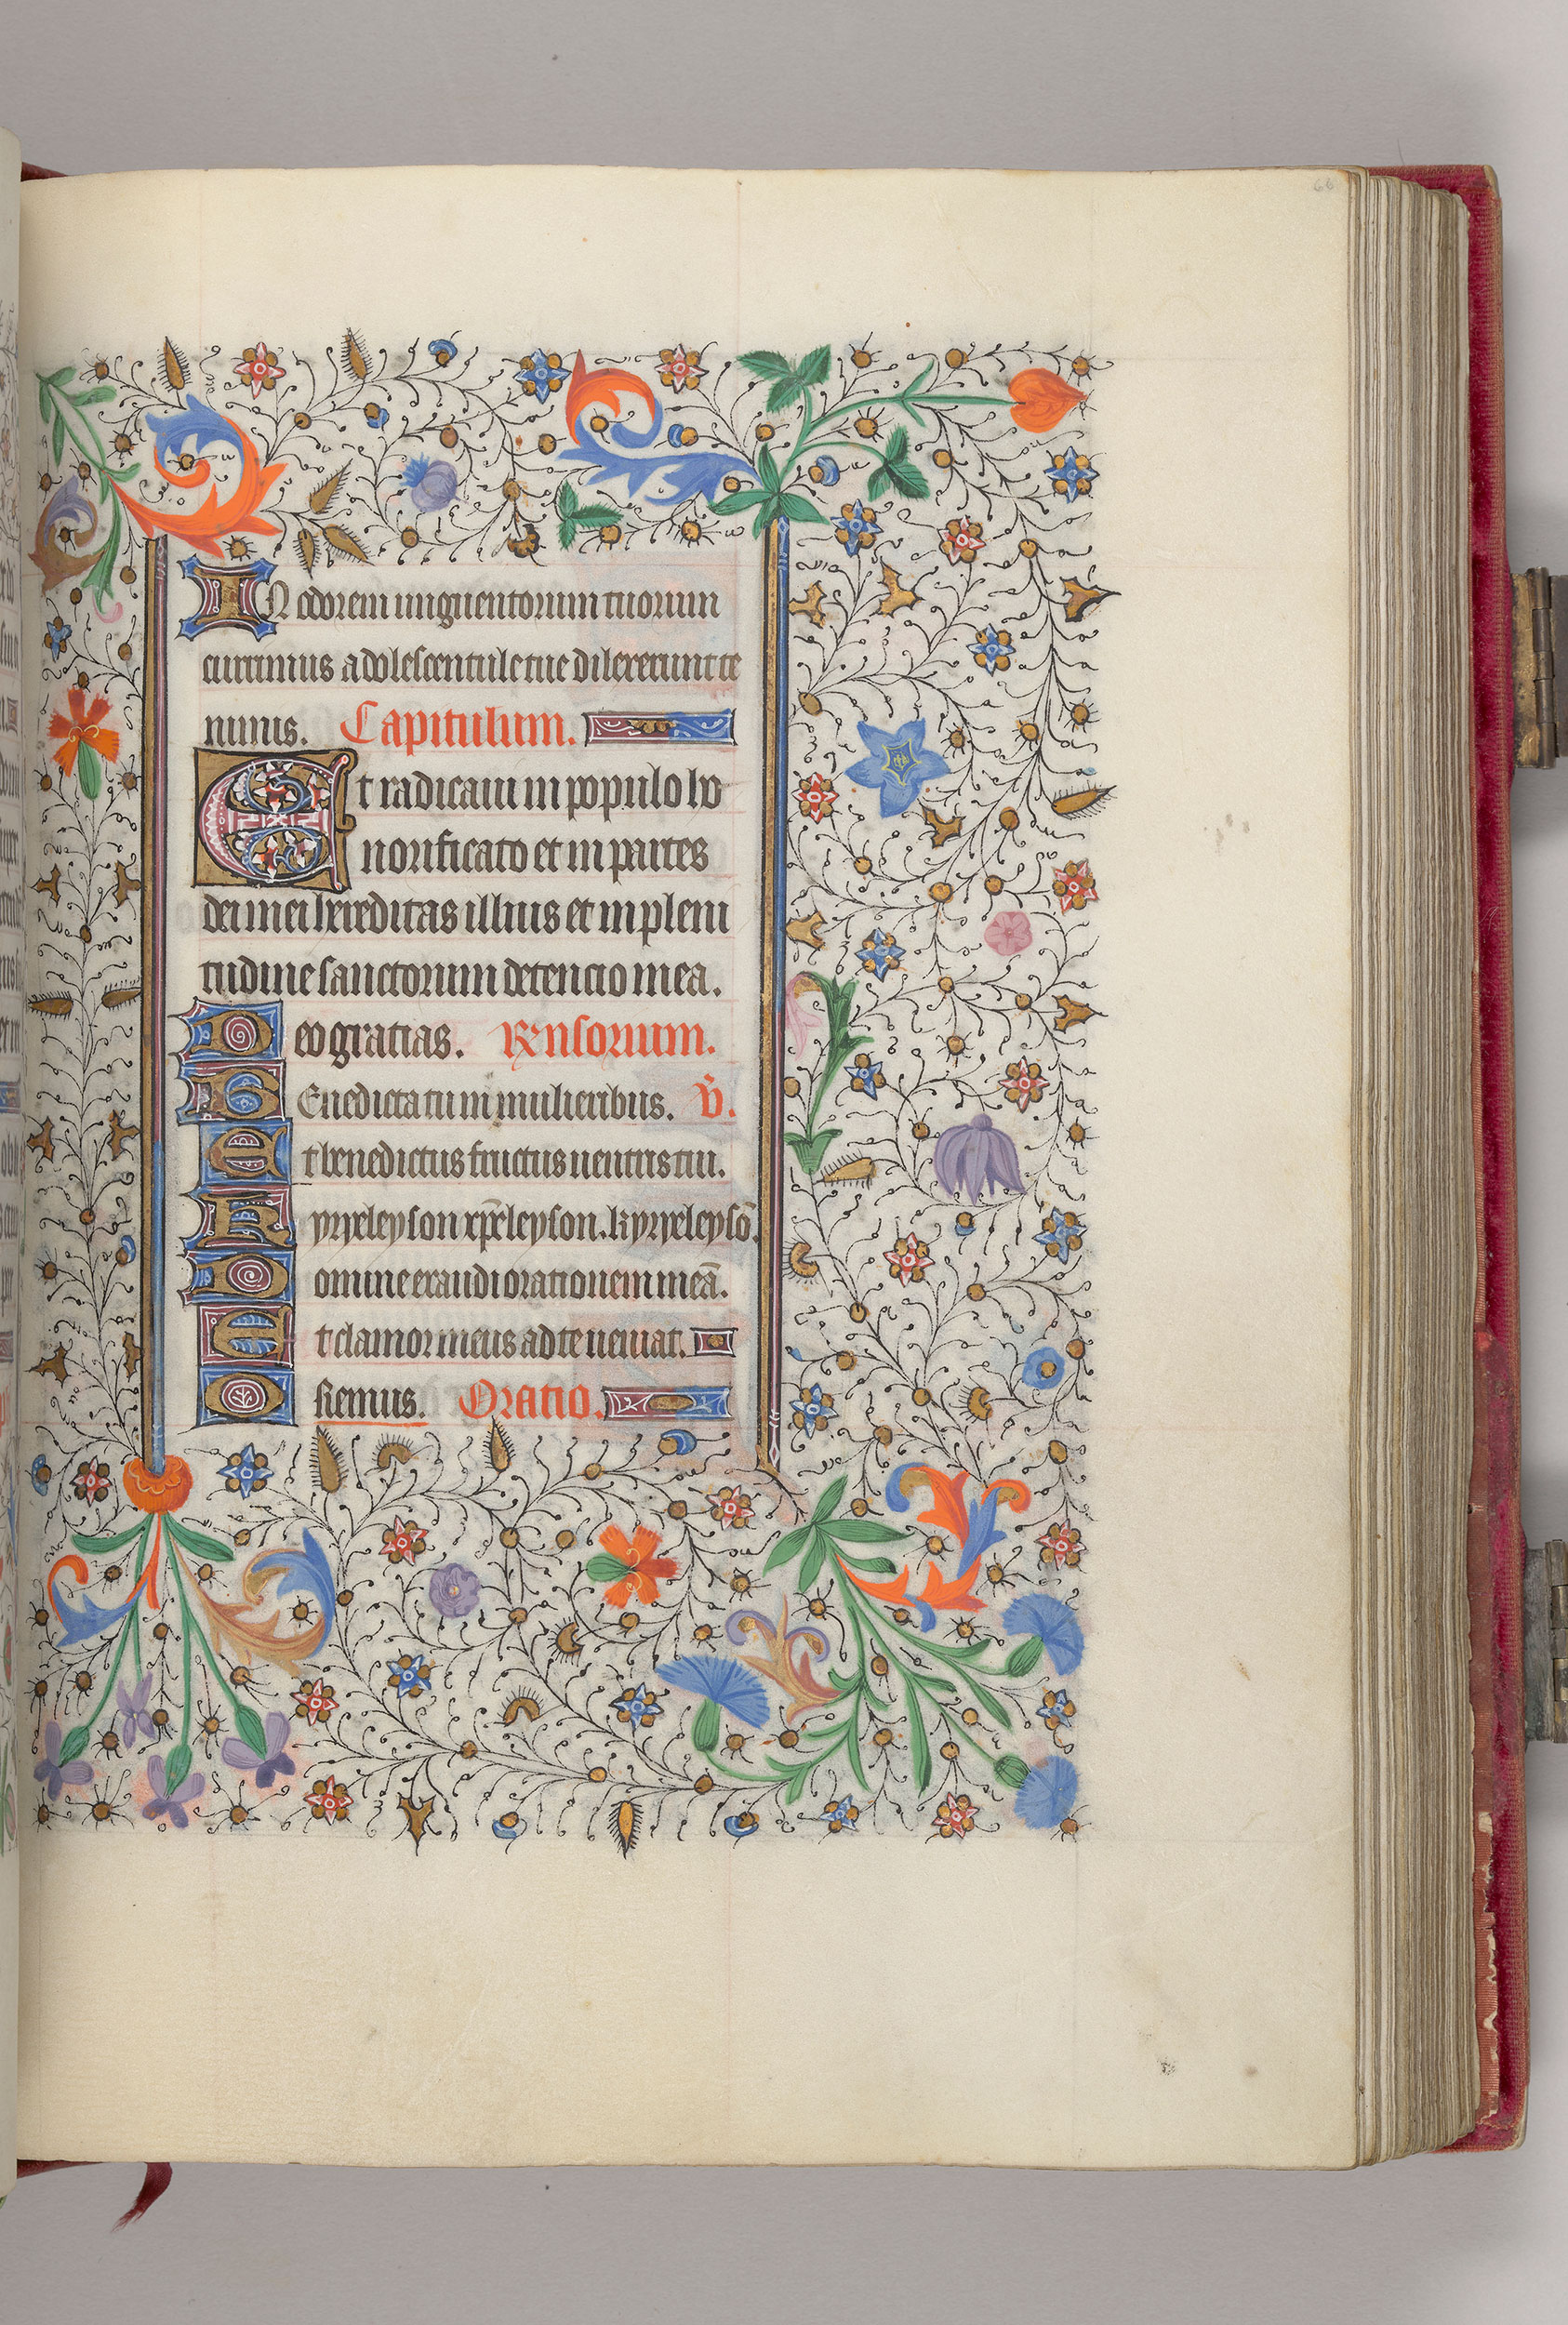 66
IN odorem unguentorum tuorum
currimus adolescentule tue dilexerunt te
nimis. Capitulum.
Et radicaui in populo ho
norificato et in partes
dei mei hereditas illius et in pleni
tudine sanctorum detencio mea.
Deo gratias. Rensorium.
BEnedicta tu in mulieribus. V̄.
Et benedictus fructus uentris tui.
Kyrieleyson xp̄eleyson. kyrieleysō.
Domine exaudi orationem meā.
Et clamor meus ad te ueniat.
Oremus. Oratio.